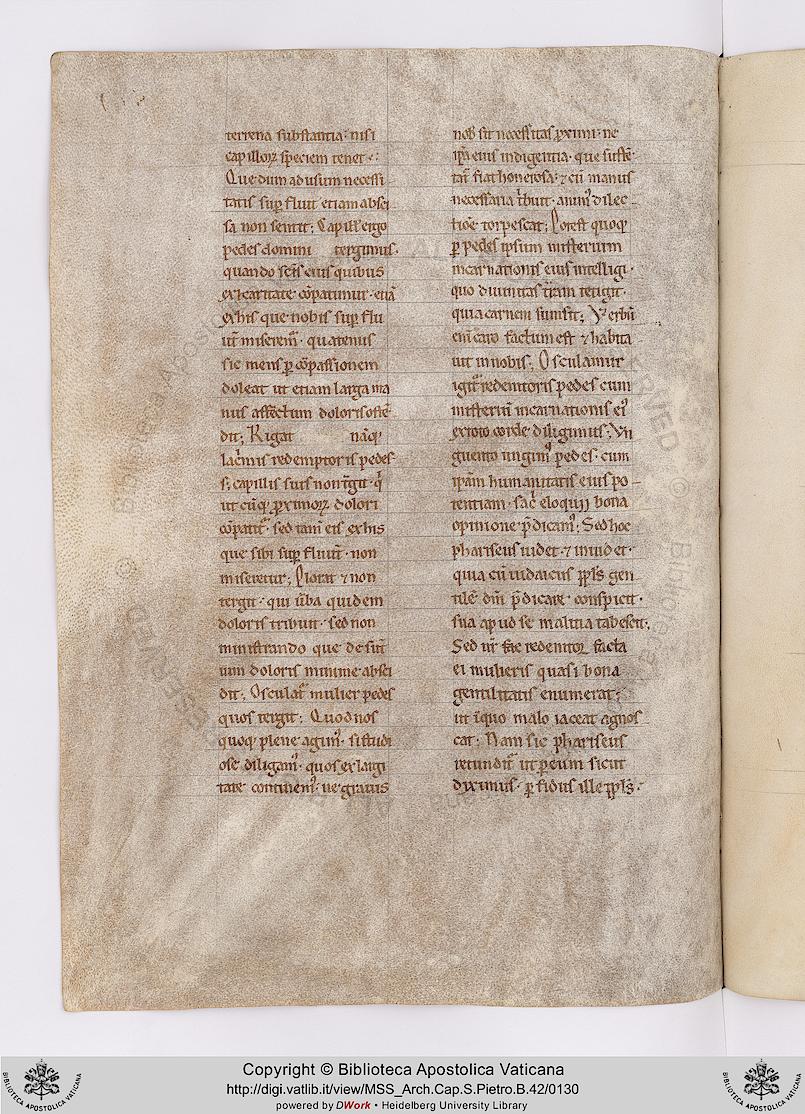 terrena substantia· nisi
capilloꝝ speciem tenet·:
Que dum ad usum necessi
tatis sup̱ fluit etiam absci
sa non sentit; Capill' ergo
pedes domini tergimus·
quando scīs eius quibus
ex caritate cōpatimur· etiā
ex his que nobis sup̱ flu
ūt miserem᷒· quatenus
sic mens p̱ cōpassionem
doleat ut etiam larga ma
nus affectum doloris ostē
dit; Rigat nāq;
lac̓mis redemptoris pedes
s; capillis suis non t̓git· q̓
utcūq; ꝓximoꝝ dolori
cōpatit᷑· sed tam̄ eis ex his
que sibi sup̱ fluūt· non
miseretur; Plorat ⁊ non
tergit· qui ūba quidem
doloris tribuit· sed non
ministrando que desūt
uim doloris minime absci
dit; Osculat᷑ mulier pedes
quos tergit; Quod nos
quoq; plene agim᷒· si studi
ose diligam᷒· quos ex largi
tate continem᷒· ne grauis
nob̄ sit necessitas ꝓximi· ne
ip̄a eius indigentia· que sustē
tat̄ fiat honerosa· ⁊ cū manus
necessaria t̓buit· anim᷒ dilec
tiōe torpescat; Potest quoq;
p̱ pedes ipsum misterium
incarnationis eius intelligi·
quo diuinitas t̄ram tetigit·
quia carnem sumsit; Verbū
eni᷑ caro factum est ⁊ habita
uit in nobis; Osculamur
igit᷑ redemtoris pedes cum
misteriū incarnationis ei᷒
ex toto corde diligimus; Vn
guento ungim᷒ pedes· cum
ipām humanitatis eius po
tentiam· sac̓ eloquij bona
opinione p̄dicam᷒; Sed hoc
phariseus uidet· ⁊ inuidet·
quia cū iudaicus pp̄ls gen
tilē dm̄ p̄dicare conspicit·
sua apud se malitia tabescit;
Sed nr̄ fr̄e redemtor facta
ei mulieris quasi bona
gentilitatis enumerat;
ut ī quo malo iaceat agnos
cat; Nam sic phariseus
retundit᷑ ut p̱ eum sicut
diximus· p̱fidus ille pp̄ls·
Copyright © Biblioteca Apostolica Vaticana
http://digi.vatlib.it/view/MSS_Arch.Cap.S.Pietro.B.42/0130
powered by DWork • Heidelberg University Library